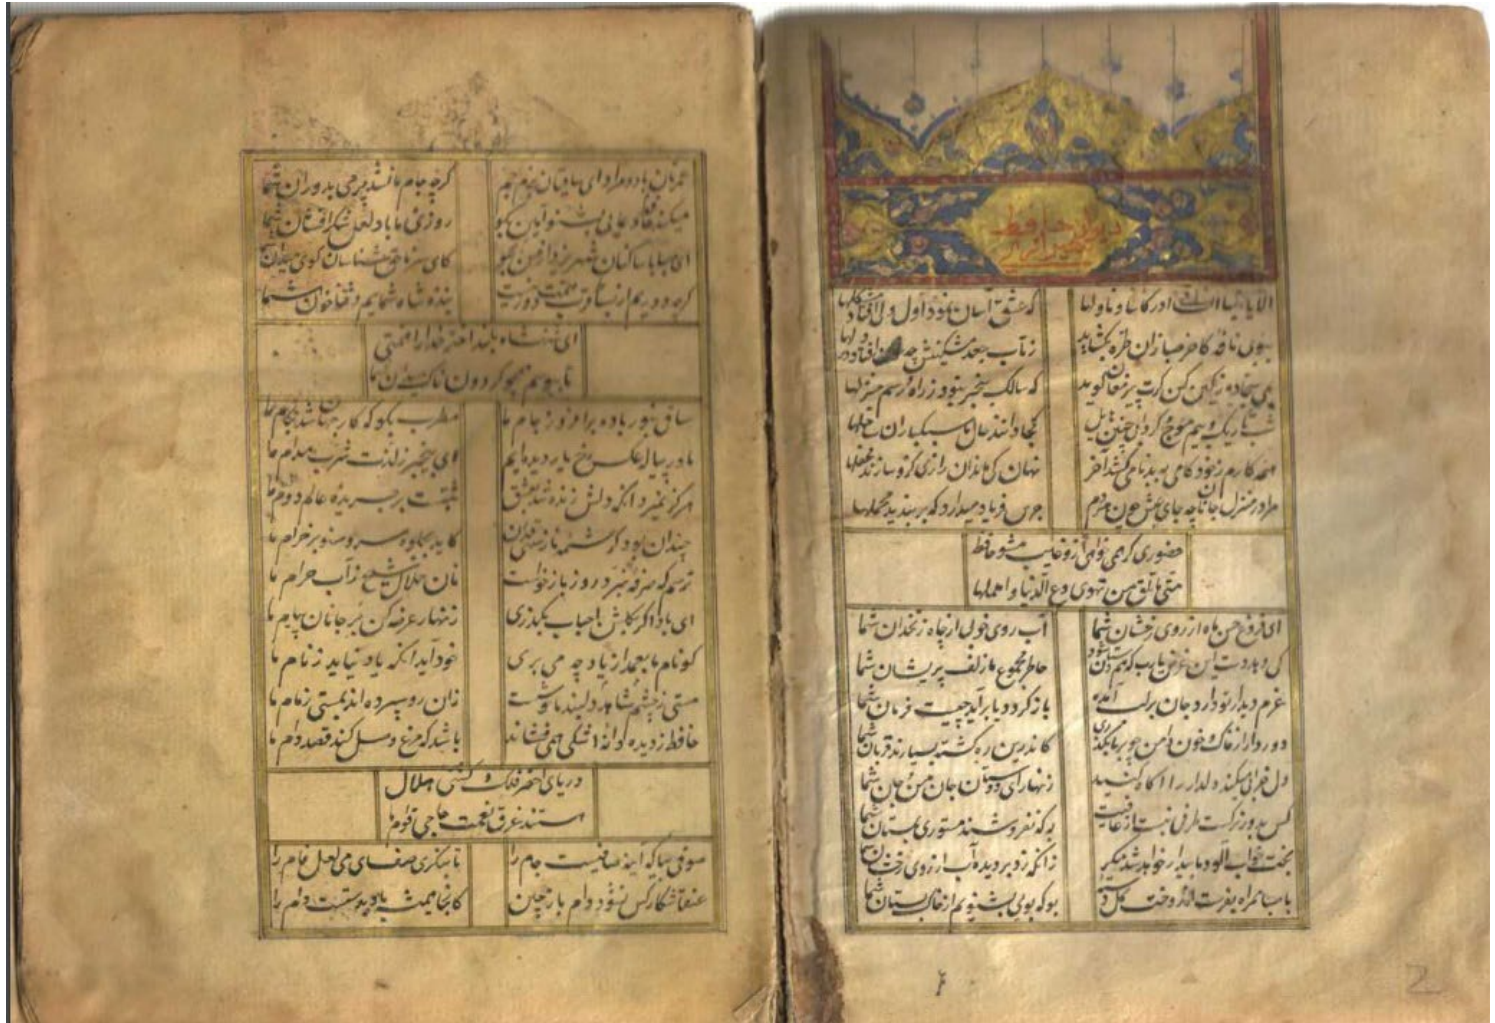 دیوان حافظ
الا یا ایها الساقی ادر کاسا و ناولها که عشق آسان نمود اول ولی افتاد مشکلها
ببوی نافه کاخر صبا زان طره بکشاید ز تاب جعد مشکینش چه خون افتاد در دلها
بمی سجاده رنگین کن کرت پیر مغان کوید که سالک بیخبر نبود ز راه و رسم منزلها
شب تاریک و بیم موج و کردابی چنین هایل کجا دانند حال ما سبکباران ساحلها
همه کارم ز خود کامی به بدنامی کشد آخر نهان کی ماند آن رازی کزو سازند محفلها
مرا در منزل جانان چه جای عیش چون هردم جرس فریاد میدارد که بر بندید محملها
حضوری کرهمی خواهی ازو غایب مشو حافظ
متی ما تلق من تهوی دع الدنیا و اهملها
ای فروغ حسن ماه از روی رخشان شما آب روی خوبی از چاه زنخدان شما
کی دهد دست این غرض یارب که همدستان شوند خاطر مجموع ما زلف پریشان شما
عزم دیدار تو دارد جان بر لب آمده باز کردد یا برآید چیست فرمان شما
دور دار از خاک و خون دامن چو بر ما بکذری کاندرین ره کشته بسیارند قربان شما
دل خرابی میکند دلدار را آکه کنید زنهار ای دوستان جان من و جان شما
کس بدور نرکست طرفی نبست از عافیت به که نفروشند مستوری بمستان شما
بخت خواب آلود ما بیدار خواهد شد مکر زانکه زد بر دیده آب از روی رخشان شما
با صبا همراه بفرست از رخت کلدسته بو که بویی بشنویم از خاک بستان شما
عمرتان باد و مراد ای ساقیان بزم جم کرچه جام ما نشد پر می بدوران شما
میکند حافظ دعایی بشنو آمین بکو روزی ما باد لعل شکر افشان شما
ای صبا با ساکنان شهر یزد از من بکو کای سر ناحق شناسان کوی میدان شما
کرچه دوریم از بساط قرب همت دور نیست بنده شاه شماییم و ثناخوان شما
ای شهنشاه بلند اختر خدا را همتی
تا ببوسم همچو کردون خاک ایوان شما
ساقی بنور باده برافروز جام ما مطرب بکو که کار جهان شد بکام ما
ما در پیاله عکس رخ یار دیده ایم ای بیخبر ز لذت شرب مدام ما
هرکز نمیرد آنکه دلش زنده شد بعشق ثبتست بر جریده عالم دوام ما
چندان بود کرشمه و ناز سهی قدان کاید بجلوه سرو صنوبر خرام ما
ترسم که صرفه نبرد روز بازخواست نان حلال شیخ ز آب حرام ما
ای باد اکر بکلشن احباب بکذری زنهار عرضه کن بر جانان پیام ما
کو نام ما بعمدا ز یاد چه می بری خود آید آنکه یاد نیاید ز نام ما
مستی ز چشم شاهد دلبند ما خوشست زان رو سپرده اند بمستی زمام ما
حافظ ز دیده دانه اشکی همی فشاند باشد که مرغ وصل کند قصد دام ما
دریای اخضر فلک و کشتی هلال
هستند غرق نعمت حاجی قوام ما
صوفی بیا که آینه صافیست جام را تا بنکری صفای می لعل فام را
عنقا شکار کس نشود دام باز چین کانجا همیشه باد بدستست دام را
2